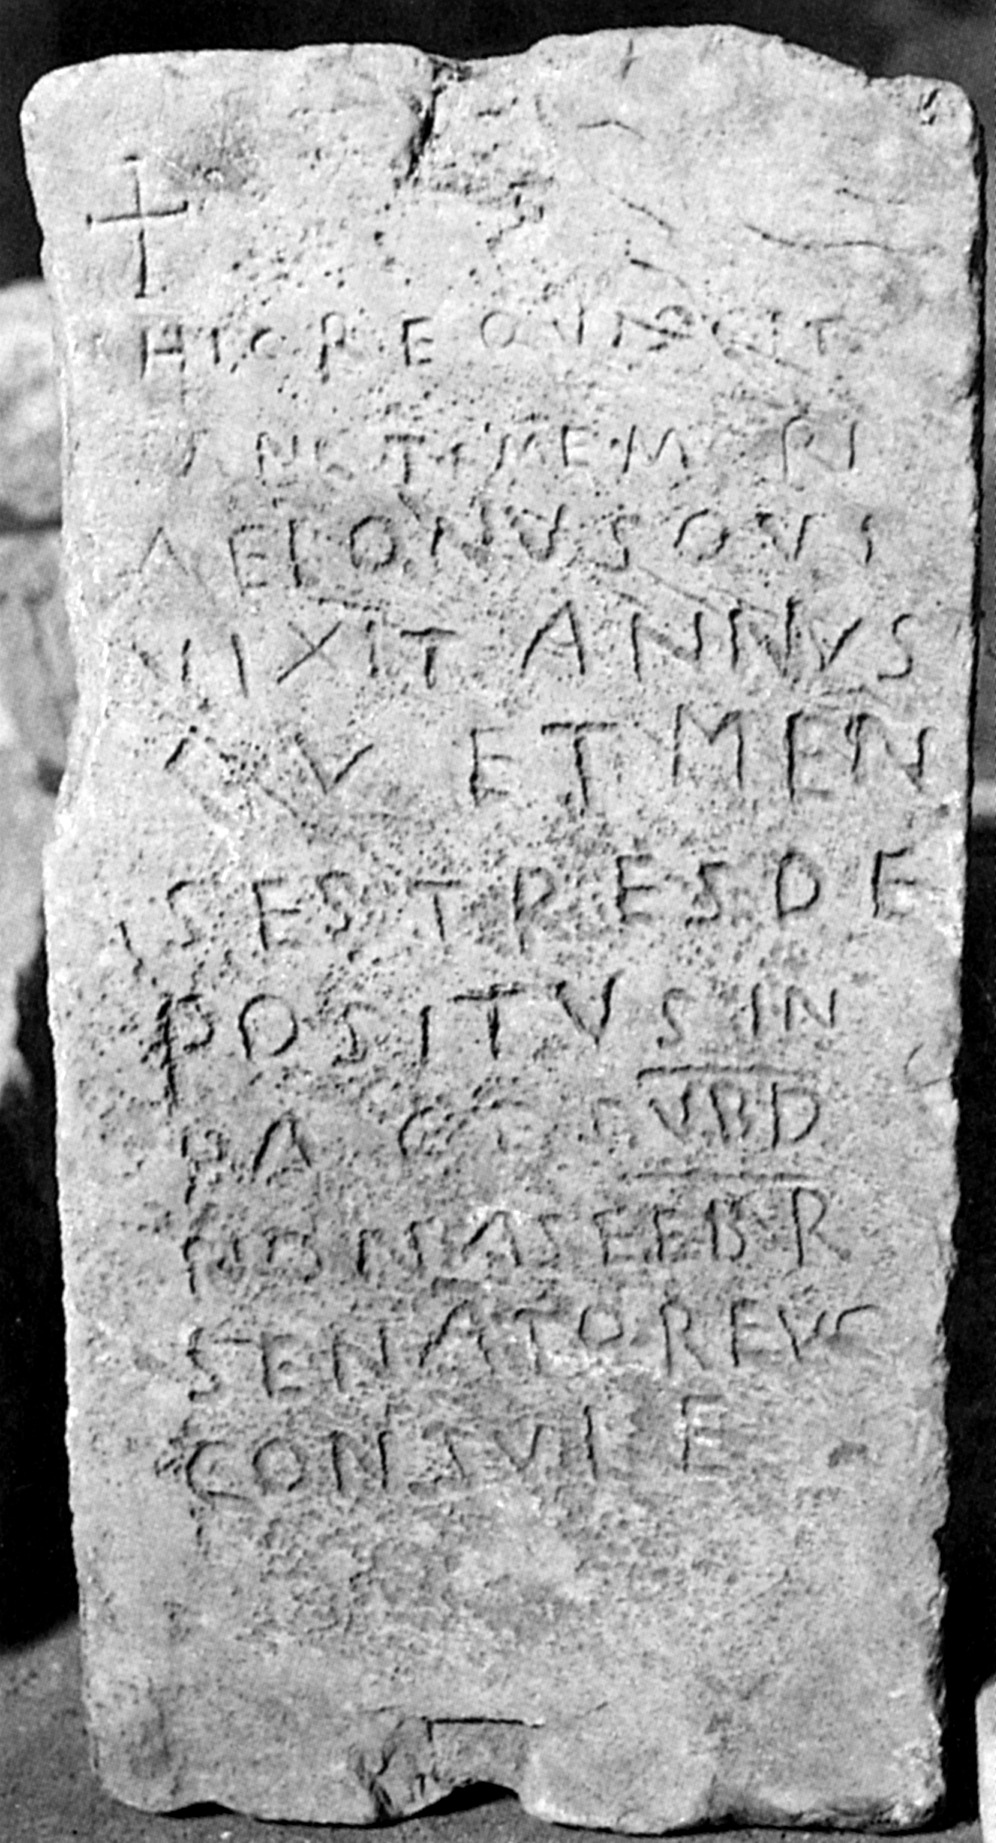 HIC REQVIISCIT
SANCTE MEMORI
AE IONVS QVI
VIIXIT ANNVS
ET MEN
ISES TRES DE
POSITVS IN
PACE SVB D
NONAS FEBR
SENATORE VC
CONSVLE